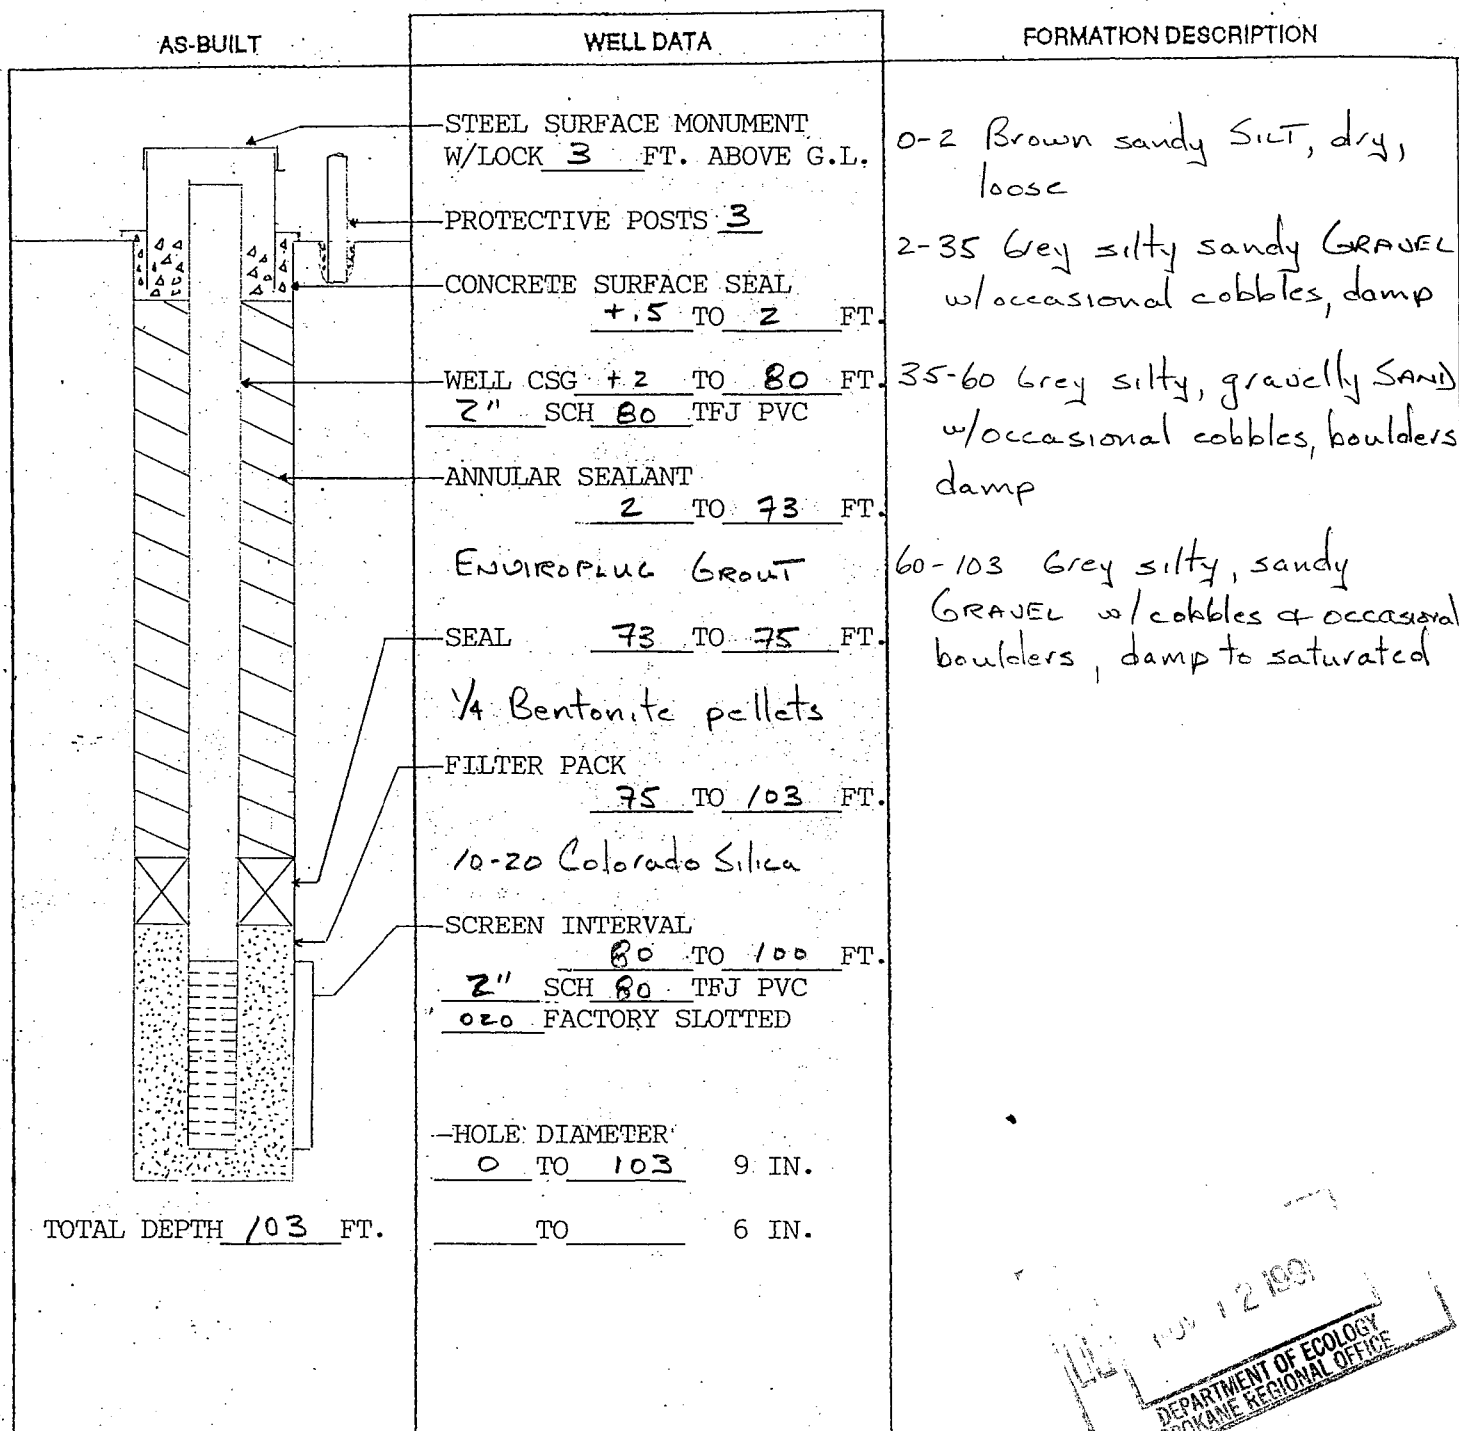 AS-BUILT
WELL DATA
FORMATION DESCRIPTION
STEEL SURFACE MONUMENT
W/LOCK 3 FT. ABOVE G.L.
PROTECTIVE POSTS 3
CONCRETE SURFACE SEAL
+.5 TO 2 FT.
WELL CSG +2 TO 80 FT.
2" SCH 80 TFJ PVC
ANNULAR SEALANT
2 TO 73 FT.
ENVIROPLUG GROUT
SEAL 73 TO 75 FT.
1/4 Bentonite pellets
FILTER PACK
75 TO 103 FT.
10-20 Colorado Silica
SCREEN INTERVAL
80 TO 100 FT.
2" SCH 80 TFJ PVC
020 FACTORY SLOTTED
HOLE DIAMETER
0 TO 103 9 IN.
TO 6 IN.
TOTAL DEPTH 103 FT.
0-2 Brown sandy SILT, dry,
loose
2-35 Grey silty sandy GRAVEL
w/occasional cobbles, damp
35-60 Grey silty, gravelly SAND
w/occasional cobbles, boulders
damp
60-103 Grey silty, sandy
GRAVEL w/cobbles & occasional
boulders, damp to saturated
12 1991
DEPARTMENT OF ECOLOGY
SPOKANE REGIONAL OFFICE